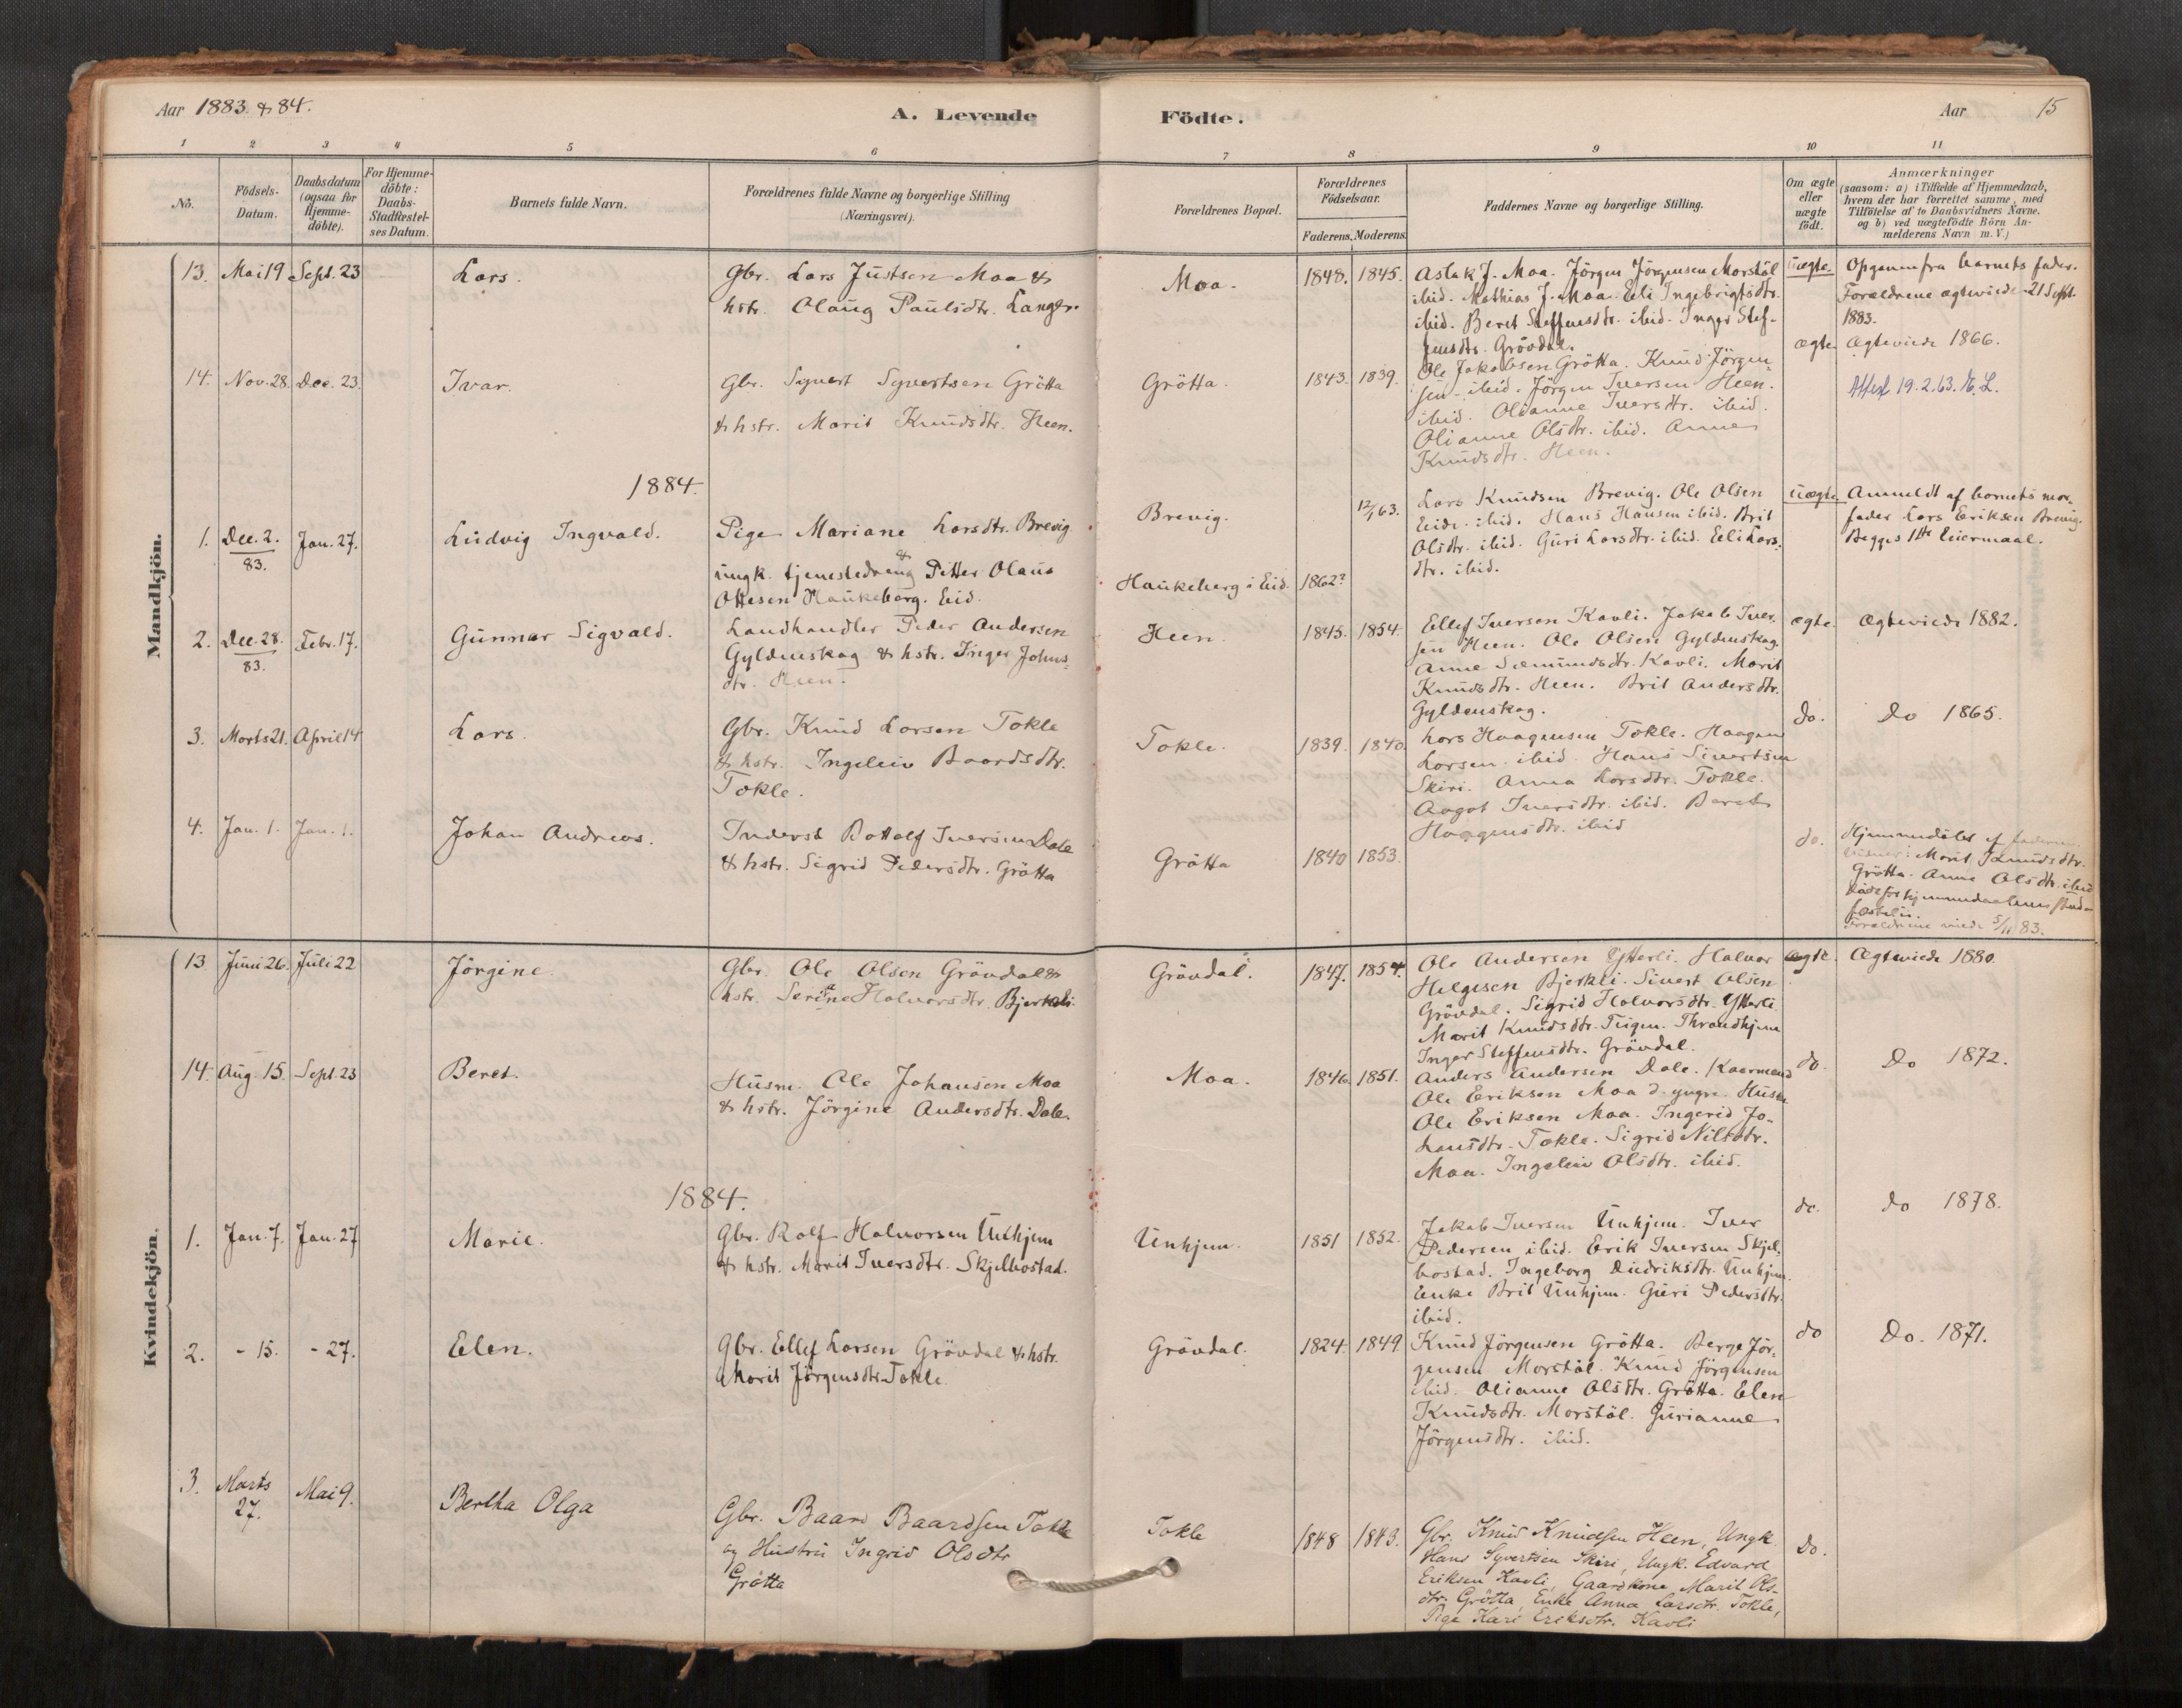 Aar 1883 & 84.
A. Levende Födte.
Aar 15
1 2 3 4 5 6 7 8 9 10 11
No.
Födsels-
Datum.
Daabsdatum
(ogsaa for
Hjemme-
döbte).
For Hjemme-
döbte:
Daabs-
Stadfæstel-
ses Datum.
Barnets fulde Navn.
Forældrenes fulde Navne og borgerlige Stilling
(Næringsvei).
Forældrenes Bopæl.
Forældrenes
Födselsaar.
Faderens. Moderens.
Faddernes Navne og borgerlige Stilling.
Om ægte
eller
uægte
födt.
Anmærkninger
(saasom: a) i Tilfælde af Hjemmedaab,
hvem der har forrettet samme, med
Tilföielse af to Daabsvidners Navne.
og b) ved uægtefödte Börn An-
melderens Navn m. V.)
Mandkjön.
13. Mai 19 Sept. 23
Lars.
Gbr. Lars Justsen Moa &
hstr. Olaug Paulsdtr. Langs.
Moa.
1848. 1845.
Aslak J. Moa. Jörgen Jörgensen Morstöl
ibid. Mathias J. Moa. Eli Ingebrigtsdtr.
ibid. Beret Steffensdtr. ibid. Inger Stef-
fensdtr. Grövdal.
uægte.
Opgaven fra barnets fader.
Forældrene ægteviede 21 Sept.
1883.
14. Nov. 28. Dec. 23.
Ivar.
Gbr. Syvert Syvertsen Grötta
& hstr. Marit Knudsdtr. Heen.
Grötta.
1843. 1839.
Ole Jakobsen Grötta. Knud Jörgen-
sen ibid. Jörgen Iversen Heen.
ibid. Olianne Iversdtr. ibid.
Olianne Olsdtr. ibid. Anne
Knudsdtr. Heen.
ægte.
Ægteviede 1866.
Attest 19.2.63. L.
1884.
1. Dec. 2. 83. Jan. 27.
Ludvig Ingvald.
Pige Mariane Larsdtr. Brevig
&
ungk. tjenestedreng Petter Olaus
Ottesen Haukeberg. Eid.
Brevig.
Haukeberg i Eid.
1862? 12/1 63.
Lars Knudsen Brevig. Ole Olsen
Eide. ibid. Hans Hansen ibid. Brit
Olsdtr. ibid. Guri Larsdtr. ibid. Eli Lars-
dtr. ibid.
uægte.
Anmeldt af barnets mor-
fader Lars Eriksen Brevig.
Begges 1ste Leiermaal.
2. Dec. 28. 83. Febr. 17.
Gunnar Sigvald.
Landhandler Peder Andersen
Gyldenskog & hstr. Inger Johns-
dtr. Heen.
Heen.
1845. 1854.
Ellef Iversen Kavli. Jakob Iver-
sen Heen. Ole Olsen Gyldenskog.
Anne Sæmundsdtr. Kavli. Marit
Knudsdtr. Heen. Brit Andersdtr.
Gyldenskog.
ægte.
Ægteviede 1882.
3. Marts 21. April 14
Lars.
Gbr. Knud Larsen Tokle
& hstr. Ingeleiv Baardsdtr.
Tokle.
Tokle.
1839. 1840.
Lars Haagensen Tokle. Haagen
Larsen ibid. Hans Sivertsen
Skiri. Anna Larsdtr. Tokle.
Aagot Iversdtr. ibid. Beret
Haagensdtr. ibid
do.
Do 1865.
4. Jan. 1. Jan. 1.
Johan Andreas.
Inderst Bottolf Iversen Dale
& hstr. Sigrid Pedersdtr. Grötta
Grötta
1840 1853.
do.
Hjemmedöbt af faderen.
Vidner: Marit Knudsdtr.
Grötta. Anne Olsdtr. ibid
Döde för hjemmedaabens stad-
fæstelse.
Forældrene viede 5/11 83.
Kvindekjön.
13 Juni 26. Juli 22
Jörgine.
Gbr. Ole Olsen Grövdal &
hstr. Serine Halvorsdtr. Bjerkeli.
Grövdal.
1847. 1854.
Ole Andersen Ytterli. Halvor
Helgesen Bjerkli. Sivert Olsen
Grövdal. Sigrid Halvorsdtr. Ytterli
Marit Knudsdtr. Teigen. Thrandhjem
Inger Steffensdtr. Grövdal.
ægte.
Ægteviede 1880.
14. Aug. 15. Sept. 23
Beret.
Husm. Ole Johansen Moa
& hstr. Jörgine Andersdtr. Dale.
Moa.
1846. 1851.
Anders Andersen Dale. Kaarmand
Ole Eriksen Moa d. yngre. Husm.
Ole Eriksen Moa. Ingerid Jo-
hansdtr. Tokle. Sigrid Nilsdtr.
Moa. Ingeleiv Olsdtr. ibid.
do.
Do 1872.
1884.
1. Jan. 7. Jan. 27
Marie.
Gbr. Rolf Halvorsen Unhjem
& hstr. Marit Iversdtr. Skjelbostad.
Unhjem.
1851 1852.
Jakob Iversen Unhjem. Iver
Pedersen ibid. Erik Iversen Skjel-
bostad. Ingeborg Diedriksdtr. Unhjem.
Enke Brit Unhjem. Guri Pedersdtr.
ibid.
do.
do 1878.
2. - 15. - 27.
Elen.
Gbr. Ellef Larsen Grövdal & hstr.
Marit Jörgensdtr. Tokle.
Grövdal.
1824. 1849
Knud Jörgensen Grötta. Berge Jör-
gensen Morstöl. Knud Jörgensen
ibid. Olianne Olsdtr. Grötta. Elen
Knudsdtr. Morstöl. Gurianne
Jörgensdtr. ibid.
do
Do. 1871.
3. Marts 27. Mai 9.
Bertha Olga
Gbr. Baard Baardsen Tokle
og Hustru Ingrid Olsdtr
Grötta
Tokle
1848 1843.
Gbr. Knud Knudsen Heen, Ungk.
Hans Syvertsen Skiri, Ungk. Edvard
Eriksen Kavli, Gaardkone Marit Ols-
dtr. Grötta, Enke Anna Larsdtr. Tokle,
Pige Kari Eriksdtr. Kavli
Do.